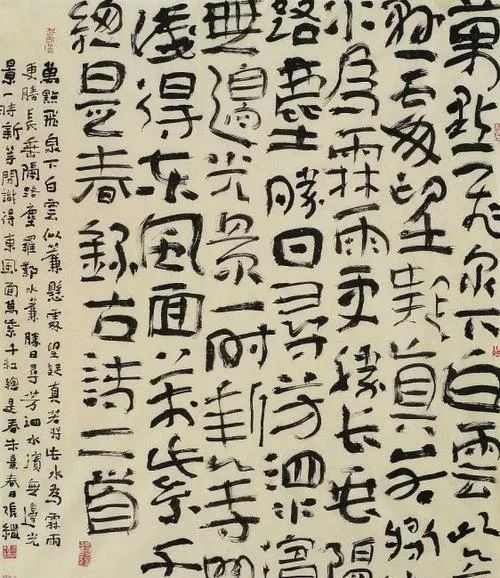 萬點飛泉下白雲似
簾懸處望疑真若將
水為霖雨更勝長垂隔
路塵勝日尋芳泗水濱
無邊光景一時新等閑
識得東風面萬紫千
總是春錄古詩二首
萬點飛泉下白雲似簾懸處望疑真若將此水為霖雨
更勝長垂隔路塵羅鄴水簾勝日尋芳泗水濱無邊光
景一時新等閑識得東風面萬紫千紅總是春朱熹春日張繼